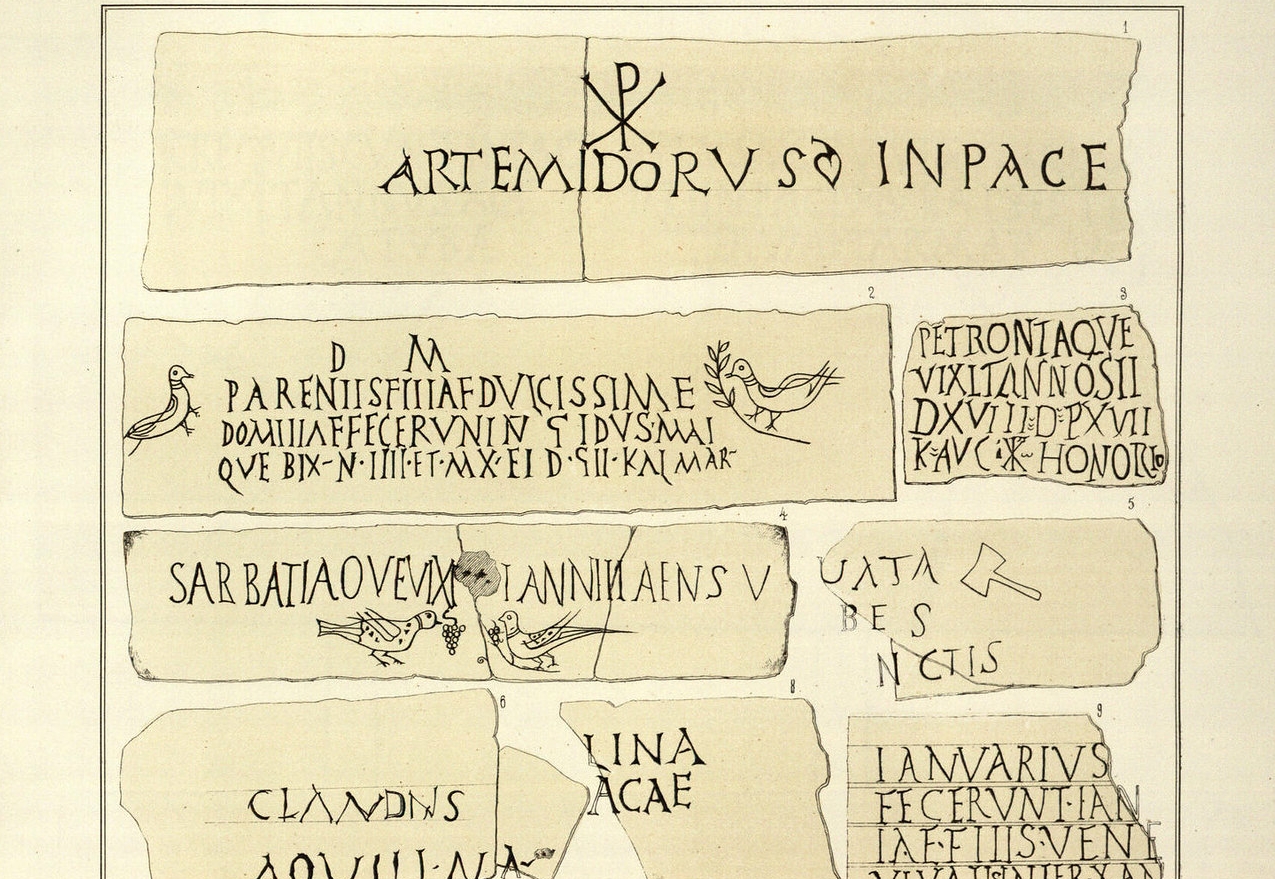 1
☧
ARTEMIDORVS ❧ IN PACE
2
D M
PARENIISFIIIAFDVLCISSIME
DOMIIIAFFECERVNIN IDVS·MAI
QVE BIX·N·IIII·ET·MX·EI D·SII·KAL MAR
3
PETRONIAQVE
VIXITANNOSII
DXVIIII·D·PXVII
K·AVC·☧ HONORIO
4
SARBATIAQVEVIXI IANNIII AENSV
5
VATA
BES
NCTIS
6
CLAVDIVS
AQVILINA
8
LINA
ACAE
9
IANVARIVS
FECERVNT·IAN
IAE·FIIIS·VENE